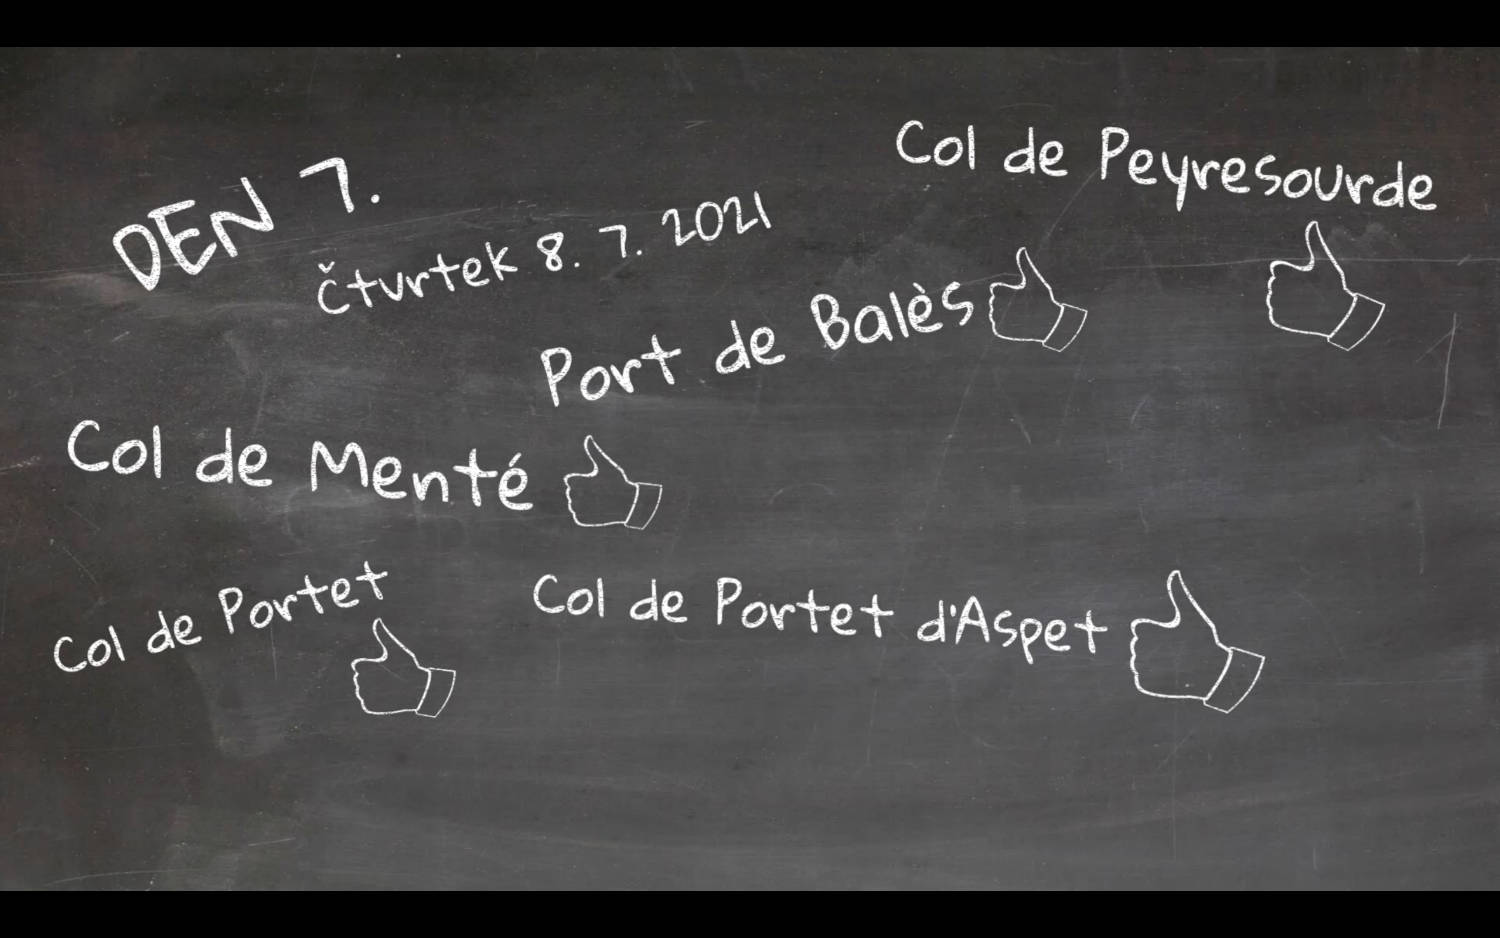 DEN 7.
Čtvrtek 8. 7. 2021
Col de Peyresourde
Port de Balès
Col de Menté
Col de Portet
Col de Portet d'Aspet